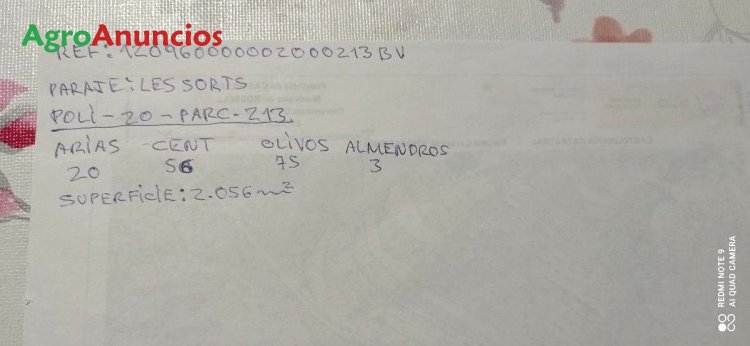 AgroAnuncios
REF: 12096000002000213BV
PARAJE: LES SORTS
POLI-20-PARC-213.
ARIAS CENT OLIVOS ALMENDROS
20 56 75 3
SUPERFICIE: 2.056 m²
REDMI NOTE 9
AI QUAD CAMERA